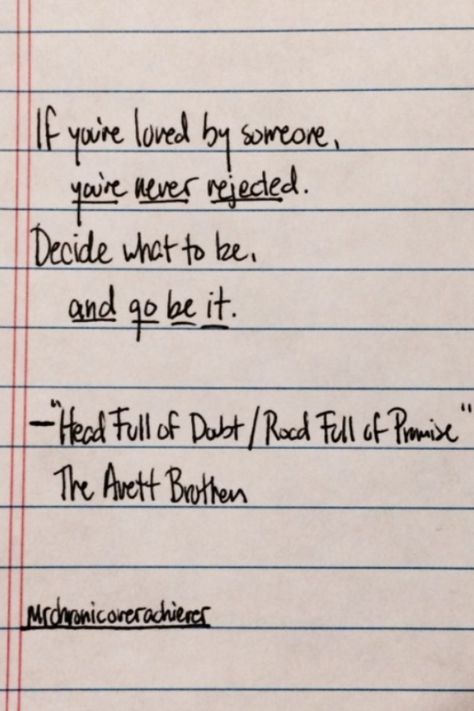 If you're loved by someone,
you're never rejected.
Decide what to be,
and go be it.
—"Head Full of Doubt/Road Full of Promise"
The Avett Brothers
mrchronicoverachiever